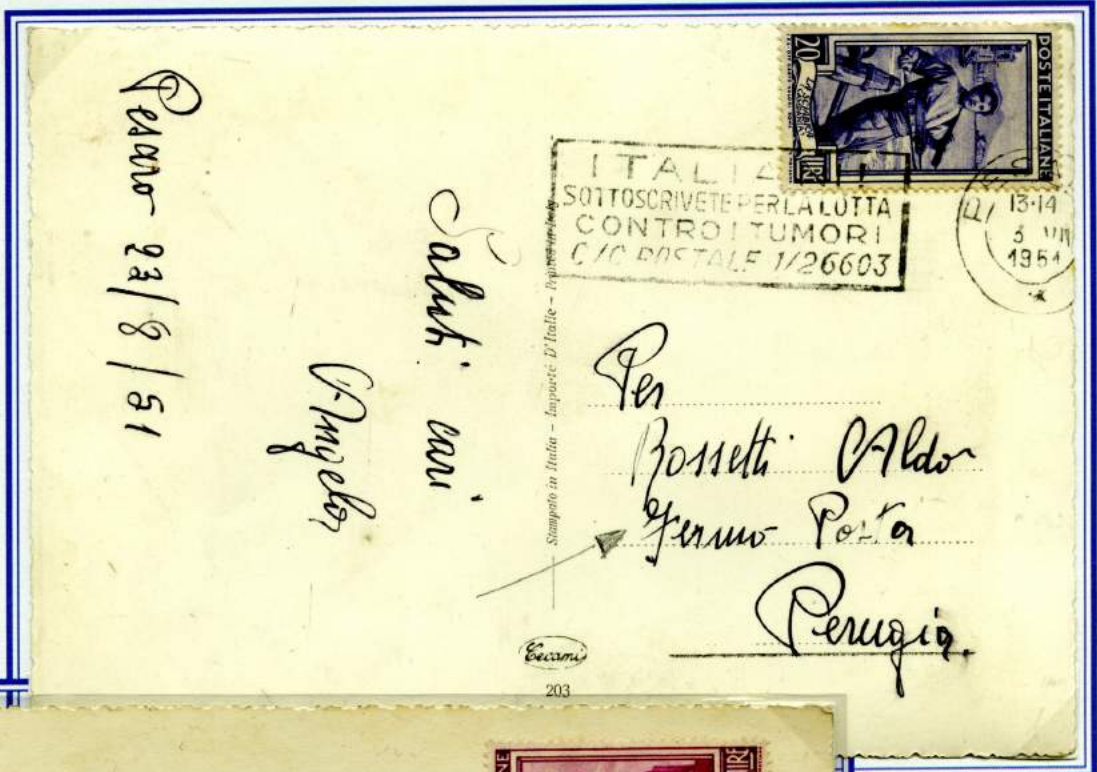 Pesaro 23/8/51
Saluti cari
Angelo
Stampato in Italia - Importé D'Italie - Printed in Italy
POSTE ITALIANE
20
LIRE
ITALIA
SOTTOSCRIVETE PER LA LOTTA
CONTRO I TUMORI
C/C POSTALE 1/26603
13-14
1951
Per
Rossetti Aldo
Fermo Posta
Perugia.
Cecami
203
NE
LIRE